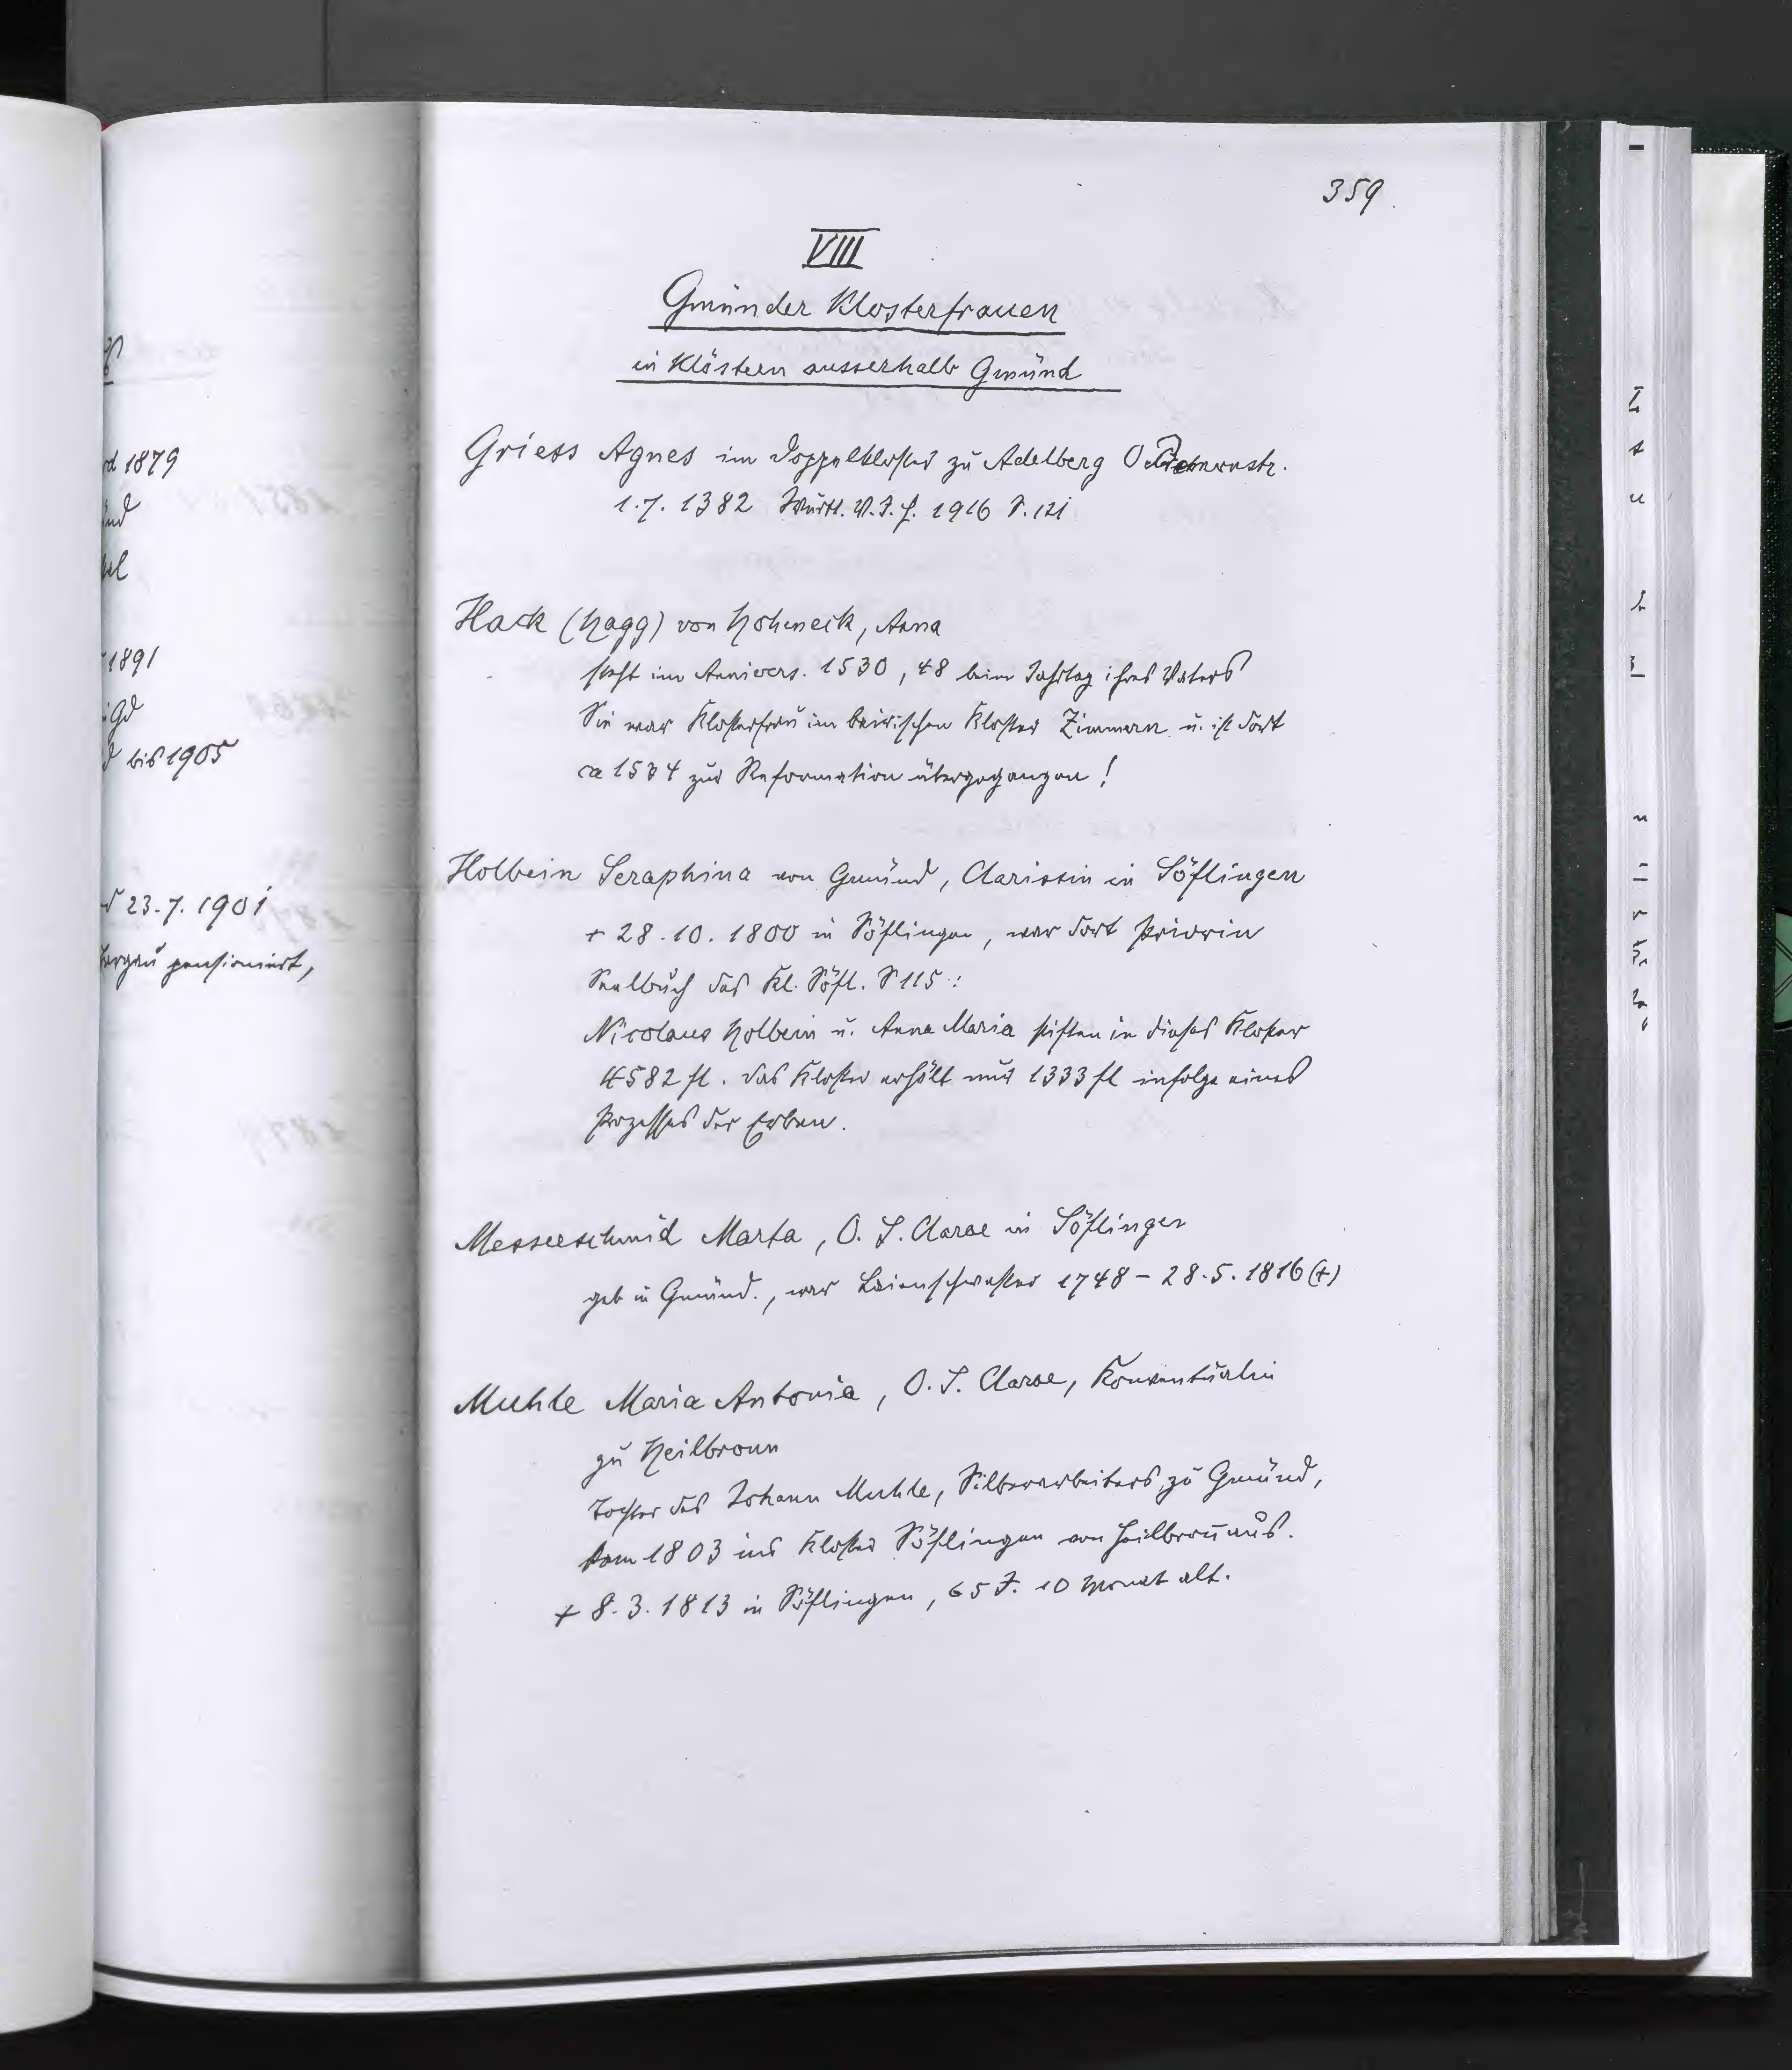 359.
VIII
Gmünder Klosterfrauen
in Klöstern ausserhalb Gmünd
Griess Agnes im Doppelkloster zu Adelberg
1.7. 1382 Württ. V.J.H. 1916 S. 121
Hack (Hagg) von Hoheneck, Anna
steht im Annivers. 1530, 48 beim Jahrtag ihres Vaters
Sie war Klosterfrau im bairischen Kloster Zimmern u. ist dort
ca 1534 zur Reformation übergegangen!
Holbein Seraphina von Gmünd, Clarissin in Söflingen
+ 28.10.1800 in Söflingen, war dort Priorin
Seelbuch des Kl. Söfl. S 115:
Nicolaus Holbein u. Anna Maria stiften in dieses Kloster
4582 fl. Das Kloster erhält nur 1333 fl infolge eines
Prozesses der Erben.
Messerschmid Marta, O. S. Clarae in Söflingen
geb in Gmünd., war Laienschwester 1748 – 28.5.1816 (+)
Muhle Maria Antonia, O. S. Clarae, Konventualin
zu Heilbronn
Tochter des Johann Muhle, Silberarbeiters zu Gmünd,
kam 1803 ins Kloster Söflingen von Heilbroñ aus.
+ 8.3.1813 in Söflingen, 65 J. 10 Monat alt.
1879
1891
bis 1905
23.7.1901
pensioniert,